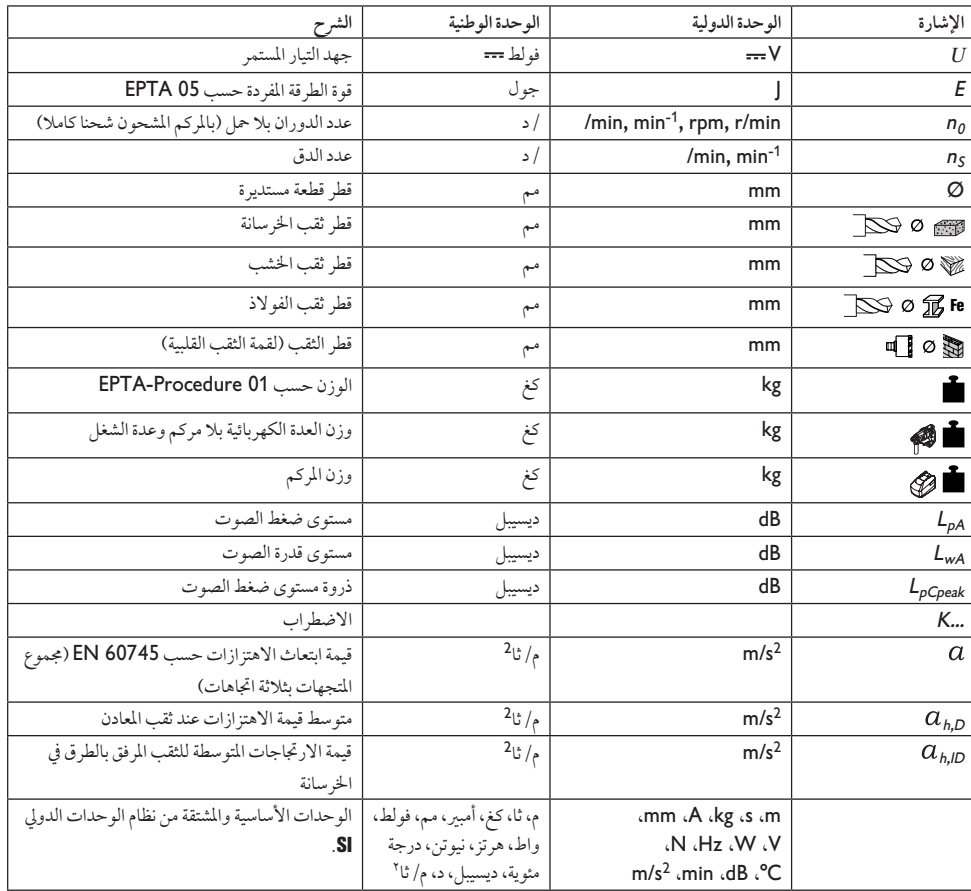 الإشارة الوحدة الدولية الوحدة الوطنية الشرح
U V فولط جهد التيار المستمر
E J جول قوة الطرقة المفردة حسب EPTA 05
n0 /min, min-1, rpm, r/min / د عدد الدوران بلا حمل (بالمركم المشحون شحنا كاملا)
nS /min, min-1 / د عدد الدق
Ø mm مم قطر قطعة مستديرة
Ø mm مم قطر ثقب الخرسانة
Ø mm مم قطر ثقب الخشب
Fe Ø mm مم قطر ثقب الفولاذ
Ø mm مم قطر الثقب (لقمة الثقب القلبية)
kg كغ الوزن حسب EPTA-Procedure 01
kg كغ وزن العدة الكهربائية بلا مركم وعدة الشغل
kg كغ وزن المركم
LpA dB ديسيبل مستوى ضغط الصوت
LwA dB ديسيبل مستوى قدرة الصوت
LpCpeak dB ديسيبل ذروة مستوى ضغط الصوت
K... الاضطراب
a m/s2 م/ ثا2 قيمة ابتعاث الاهتزازات حسب EN 60745 (مجموع
المتجهات بثلاثة اتجاهات)
ah,D m/s2 م/ ثا2 متوسط قيمة الاهتزازات عند ثقب المعادن
ah,ID m/s2 م/ ثا2 قيمة الارتجاجات المتوسطة للثقب المرفق بالطرق في
الخرسانة
m، s، kg، A، mm، م، ثا، كغ، أمبير، مم، فولط، الوحدات الأساسية والمشتقة من نظام الوحدات الدولي
V، W، Hz، N، واط، هرتز، نيوتن، درجة SI.
°C، dB، min، m/s2 مئوية، ديسيبل، د، م/ ثا٢